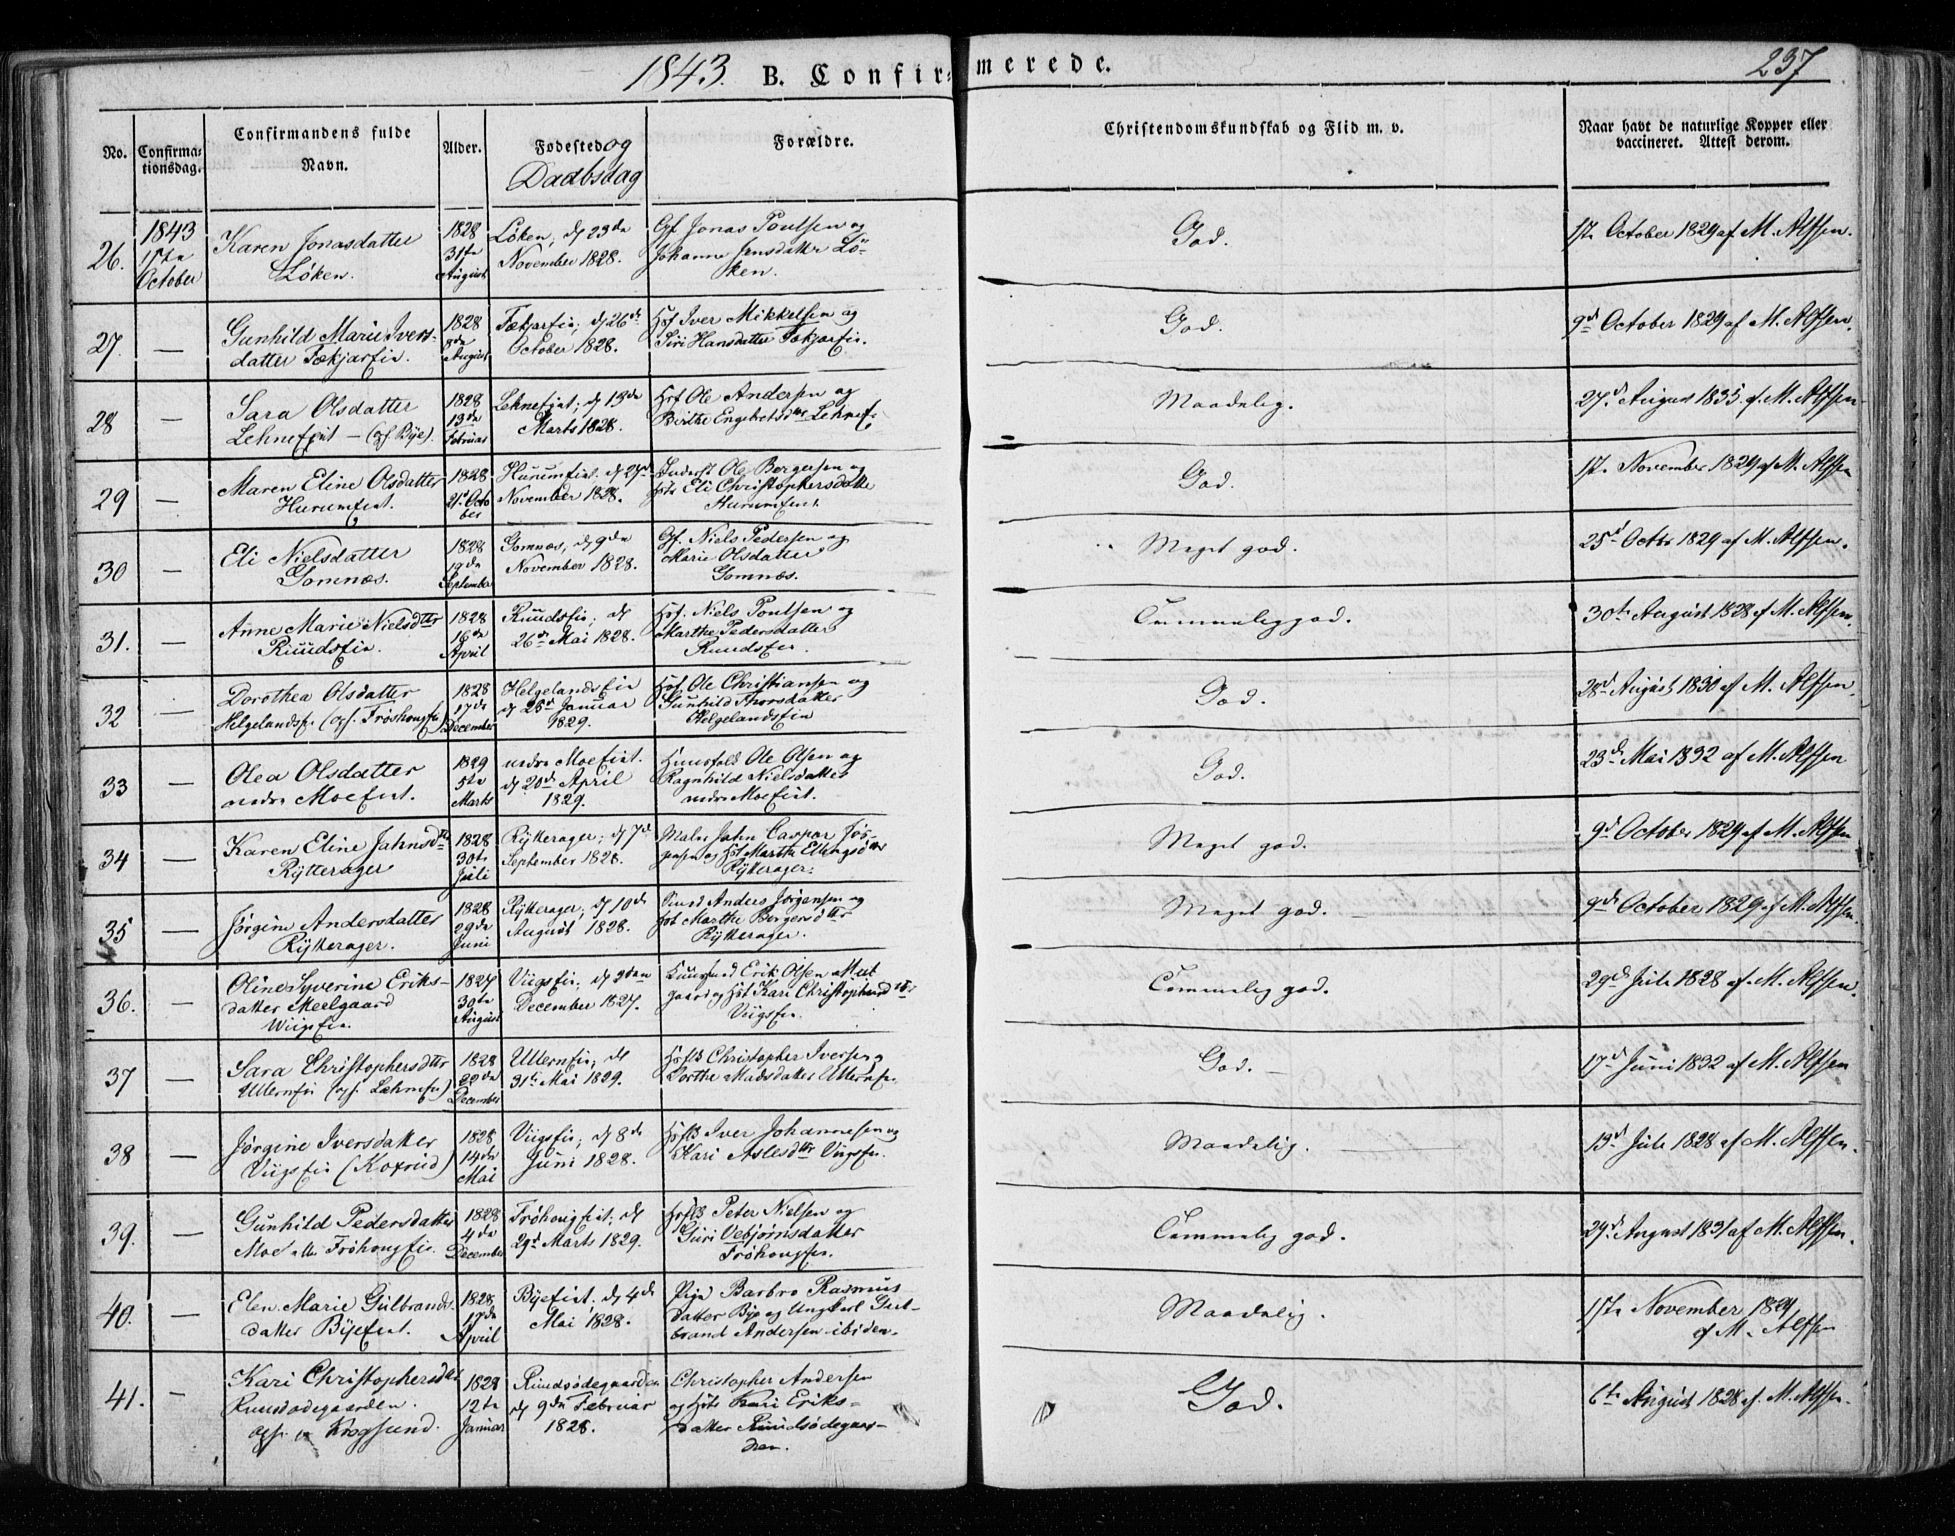 1843. B. Confirmerede. 237
No. Confirmationsdag. Confirmandens fulde Navn. Alder. Fødested og Daabsdag Forældre. Christendomskundskab og Flid m. v. Naar havt de naturlige Kopper eller vaccineret. Attest derom.
26. 1843 1ste October
Karen Jonasdatter
Løken.
1828
31te
August
Løken, d 23de
November 1828.
Gf Jonas Poulsen og
Johanne Jensdatter Lö-
ken.
God.
1ste October 1829 af M. Alfsen.
27. —
Gunhild Marie Ivers-
datter Fækjarfie.
1828
8de
August
Fækjarfie; d 26de
October 1828.
Hsf Iver Mikkelsen og
Siri Hansdatter Fækjarfie.
God.
9d October 1829 af M. Alfsen.
28 —
Sara Olsdatter
Lehnefiet — (opf Bÿe).
1828
13de
Februar
Lehnefiet; d 13de
Marts 1828.
Hsf Ole Andersen og
Birthe Engebretsdtr Lehnef.
Maadelig.
27d August 1835. af M. Alfsen.
29 —
Maren Eline Olsdatter
Hurumfiet.
1828
21d Octo
ber
Hurumfiet. d 27d
November 1828.
Inderst Ole Bergersen og
Hstr Eli Christophersdatte
Hurumfiet.
God.
1ste November 1829 af M. Alfsen
30 —
Eli Nielsdatter
Gomnæs.
1828
19de
September
Gomnæs, d 9de
November 1828.
Gf. Niels Pedersen og
Marie Olsdatter
Gomnæs.
Meget god.
25d Octbr 1829 af M. Alfsen.
31. —
Anne Marie Nielsdttr
Ruudsfie.
1828
16de
April
Ruudsfie; d
26de Mai 1828.
Hsf. Niels Poulsen og
Marthe Pedersdatter
Ruudsfie.
Temmelig god.
30te August 1828 af M. Alfsen.
32 —
Dorothea Olsdatter
Helgelandsfie (opf. Fröshougfie)
1828
17de
December
Helgelandsfie
d 25d Januar
1829.
Hsf Ole Christiansen og
Gunhild Thorsdatter
Helgelandsfie
God.
28d August 1830 af M. Alfsen.
33 —
Olea Olsdatter
nedre Moefiet.
1829
5te
Marts
nedre Moefiet.
d 20de April
1829.
Huusfolk Ole Olsen og
Ragnhild Nielsdatter
nedre Moefiet.
God.
23de Mai 1832 af M. Alfsen
34 —
Karen Eline Jahnsdtr
Rÿtterager
1828
30te
Juli
Rÿtterager; d 7de
September 1828.
Maler Jahn Caspar Jör-
gensen og Hst Marthe Ellingsdtter
Rÿtterager.
Meget god.
9d October 1829 af M. Alfsen
35 —
Jörgine Andersdatter
Rÿtterager.
1828
29de
Juni
Rÿtterager; d 10de
August 1828.
Anders Jörgensen og
Hst Marthe Bergersdttr
Rÿtterager.
Meget god. —
9de October 1829 af M. Alfsen.
36. —
Oline Syverine Eriks-
datter Meelgaard
Wiigsfie.
1827
30te
August
Viigsfie; d 9den
December 1827.
Huusmand Erik Olsen Meel
gaard og Hst Kari Christophersdttr
Viigsfie.
Temmelig god.
29de Juli 1828 af M. Alfsen.
37 —
Sara Christophersdttr
Ullernfie (opf. Læhnefie)
1828
22de
December
Ullernfie; d
31te Mai 1829.
Hsflk Christopher Iversen og
Dorthe Madsdatter Ullernfie.
God. —
17d Juni 1832 af M. Alfsen
38 —
Jörgine Iversdatter
Viigsfie (Koxrud)
1828
14de
Mai
Viigsfie; d 8de
Juni 1828.
Hsflk Iver Johannesen og
Kari Aslesdttr Viigsfie.
Maadelig. —
13d Juli 1828 af M. Alfsen.
39. —
Gunhild Pedersdatter
Moe eller Fröhougfie.
1828
4de
December
Fröhougfiet; d
29d Marts 1829.
Hsflk Peter Nielsen og
Guri Vebjørnsdatter
Fröhougfie.
Temmelig god.
29d August 1831 af M. Alfsen.
40. —
Elen Marie Gulbrands-
datter Bÿefiet.
1828
17de
April
Bÿefiet. d 4de
Mai 1828.
Pige Barbro Rasmus
datter Bÿe og Ungkarl Gul-
brand Andersen ibiden.
Maadelig.
1ste November 1829
af M. Alfsen
41. —
Kari Christophersdtr
Ruudsödegaarden.
opf. p Krogsund.
1828
12te
Januar
Ruudsödegaarden
d 9de Februar
1828.
Christopher Andersen
og Hstr Kari Eriks-
datter Ruudsödegaar-
den.
God.
6te August 1828 af. M. Alfsen.